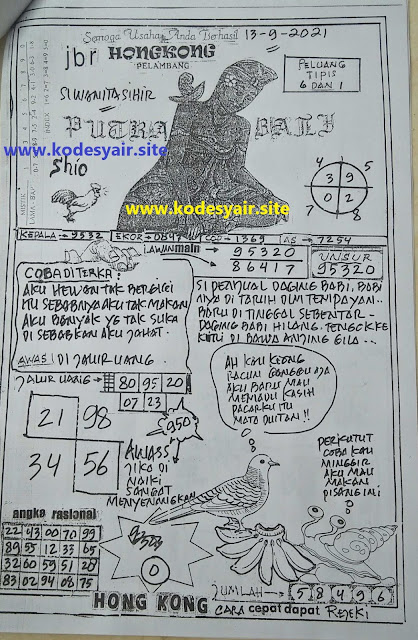 Semoga Usaha Anda Berhasil
13-9-2021
jbr HONGKONG
PELAMBANG
PELUANG
TIPIS
6 DAN 1
SI WANITA SIHIR
PUTRA BALI
www.kodesyair.site
Shio
www.kodesyair.site
4 5
3 9
0 2
7 8
KEPALA = 9532 EKOR = 0847 COP = 1369 AS = 7254
i.AWAN main
95320
86417
UNSUR
95320
COBA DI TERKA:
AKU HEWAN TAK BERGIGI
ITU SEBABNYA AKU TAK MAKAN
AKU BANYAK YG TAK SUKA
DI SEBABKAN AKU JAHAT.
AWAS! DI JALUR UANG.
SI PENJUAL DAGING BABI, BABI
NYA DI TARUH DLM TEMPAYAN..
BARU DI TINGGAL SEBENTAR -
DAGING BABI HILANG. TENGOK KE
DI BAWA ANJING GILA ...
JALUR UANG =
80 95 20
07 23
950
21 98
34 56
AWASS
JIKA DI
NAIKI
SANGAT
MENYENANGKAN
AH KAU KEONG
RACUN GANGGU AJA
AKU BARU MAU
MEMADU KASIH
PACARKU ITU
MATA DUITAN!!
PERKUTUT
COBA KAU
MINGGIR
AKU MAU
MAKAN
PISANG INI
angka rasional
22 43 00 70 99
89 55 12 33 65
32 60 59 51 28
83 02 94 08 75
0
JUMLAH = 5 8 4 9 6
HONG KONG CARA cepat dapat REJEKI